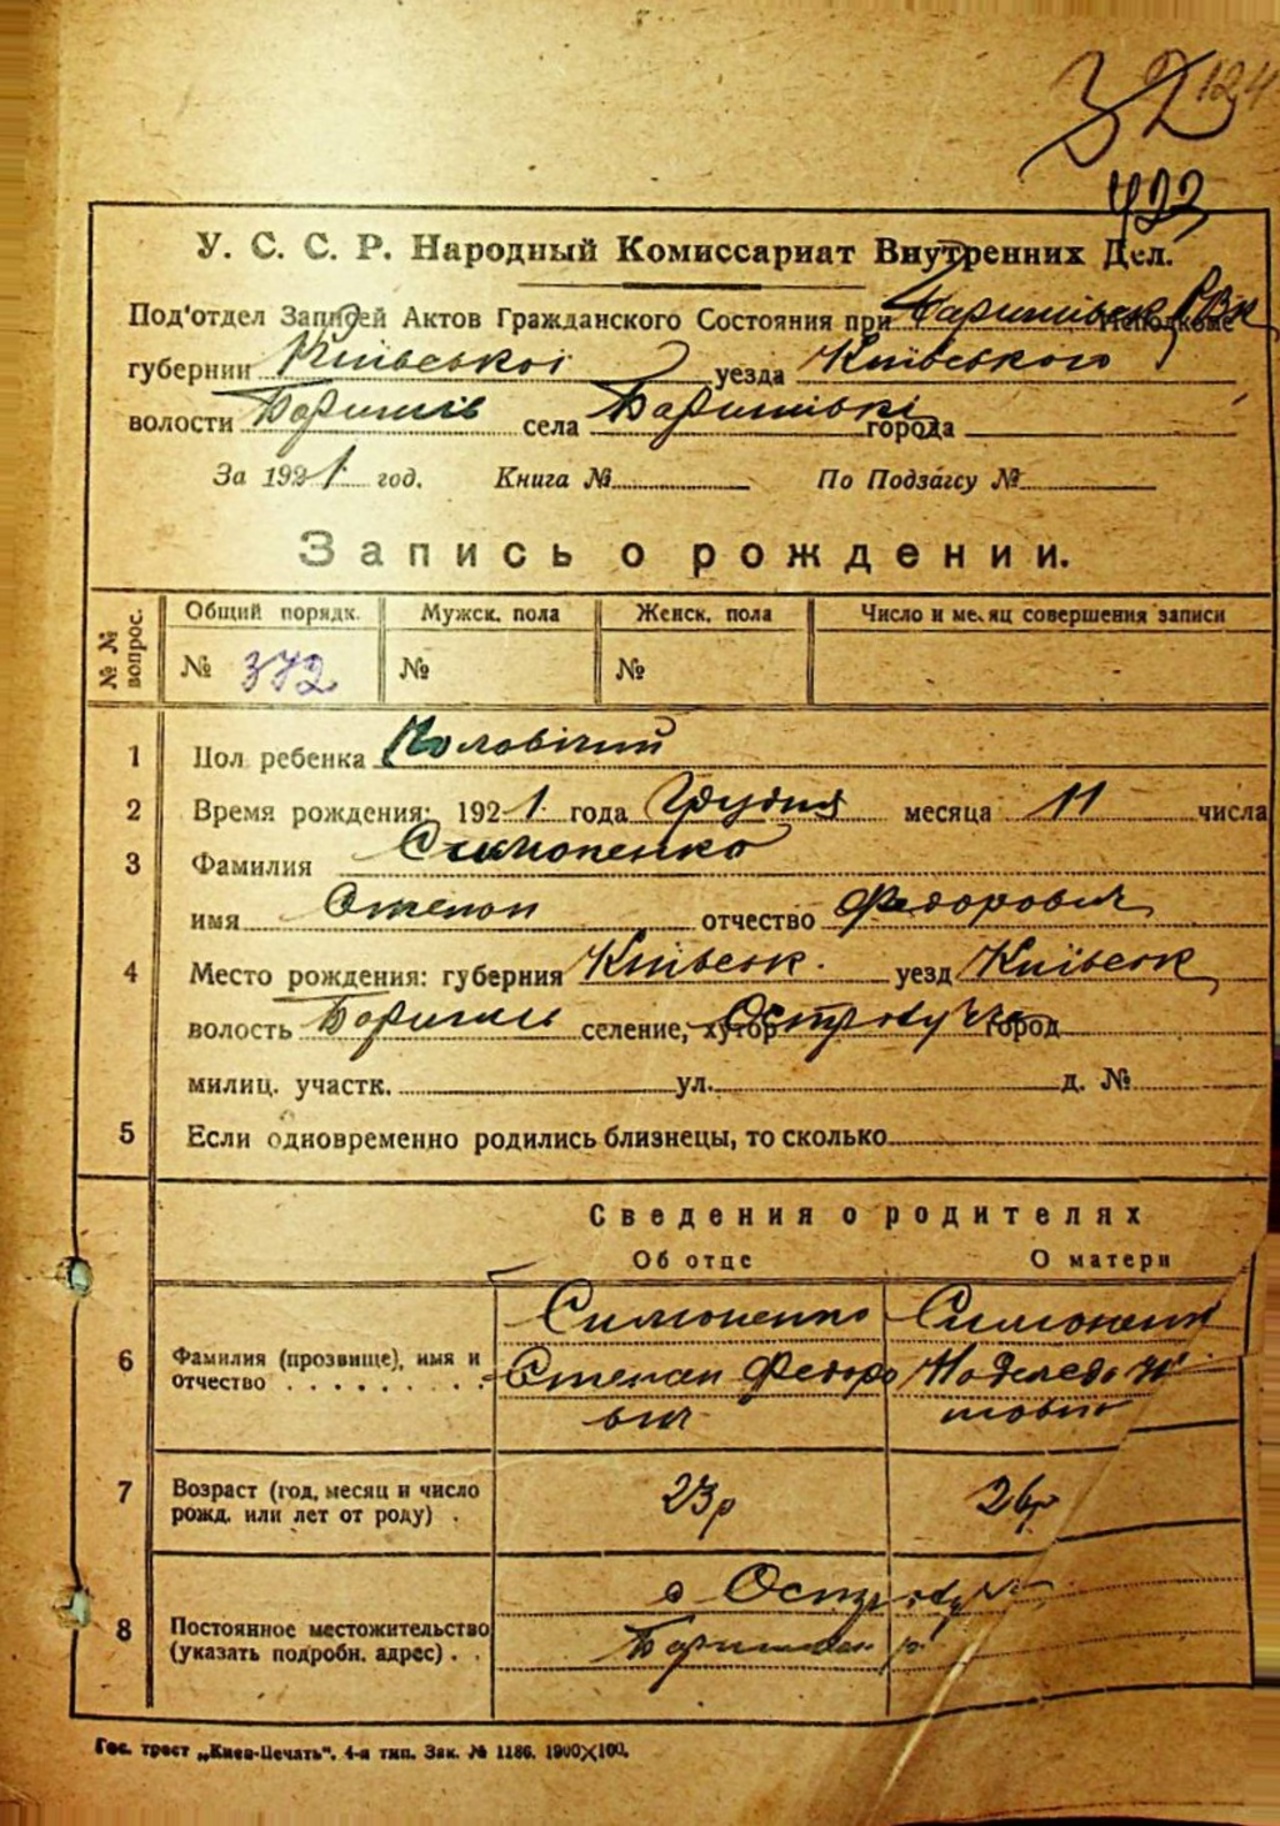 32 124
423
У. С. С. Р. Народный Комиссариат Внутренних Дел.
Под'отдел Записей Актов Гражданского Состояния при Баришівськ РВК Исполкоме
губернии Київської уезда Київського
волости Баришів села Баришівкі города
За 1921 год. Книга № По Подзагсу №
Запись о рождении.
№ № вопрос. Общий порядк. Мужск. пола Женск. пола Число и месяц совершения записи
№ 372 № №
1 Пол ребенка Чоловічий
2 Время рождения: 1921 года Грудня месяца 11 числа
3 Фамилия Симоненко
имя Степан отчество Федорович
4 Место рождения: губерния Київськ. уезд Київськ
волость Баришів селение, хутор город
милиц. участк. ул. д. №
5 Если одновременно родились близнецы, то сколько
Сведения о родителях
Об отце О матери
Симоненко Симоненк
6 Фамилия (прозвище), имя и отчество . . . . . . . . . Степан Федоро
вич
7 Возраст (год, месяц и число рожд. или лет от роду) . 23р 26р
с
8 Постоянное местожительство (указать подробн. адрес) . . р
Гос. трест „Киев-Печать". 4-я тип. Зак. № 1186. 1900×100.